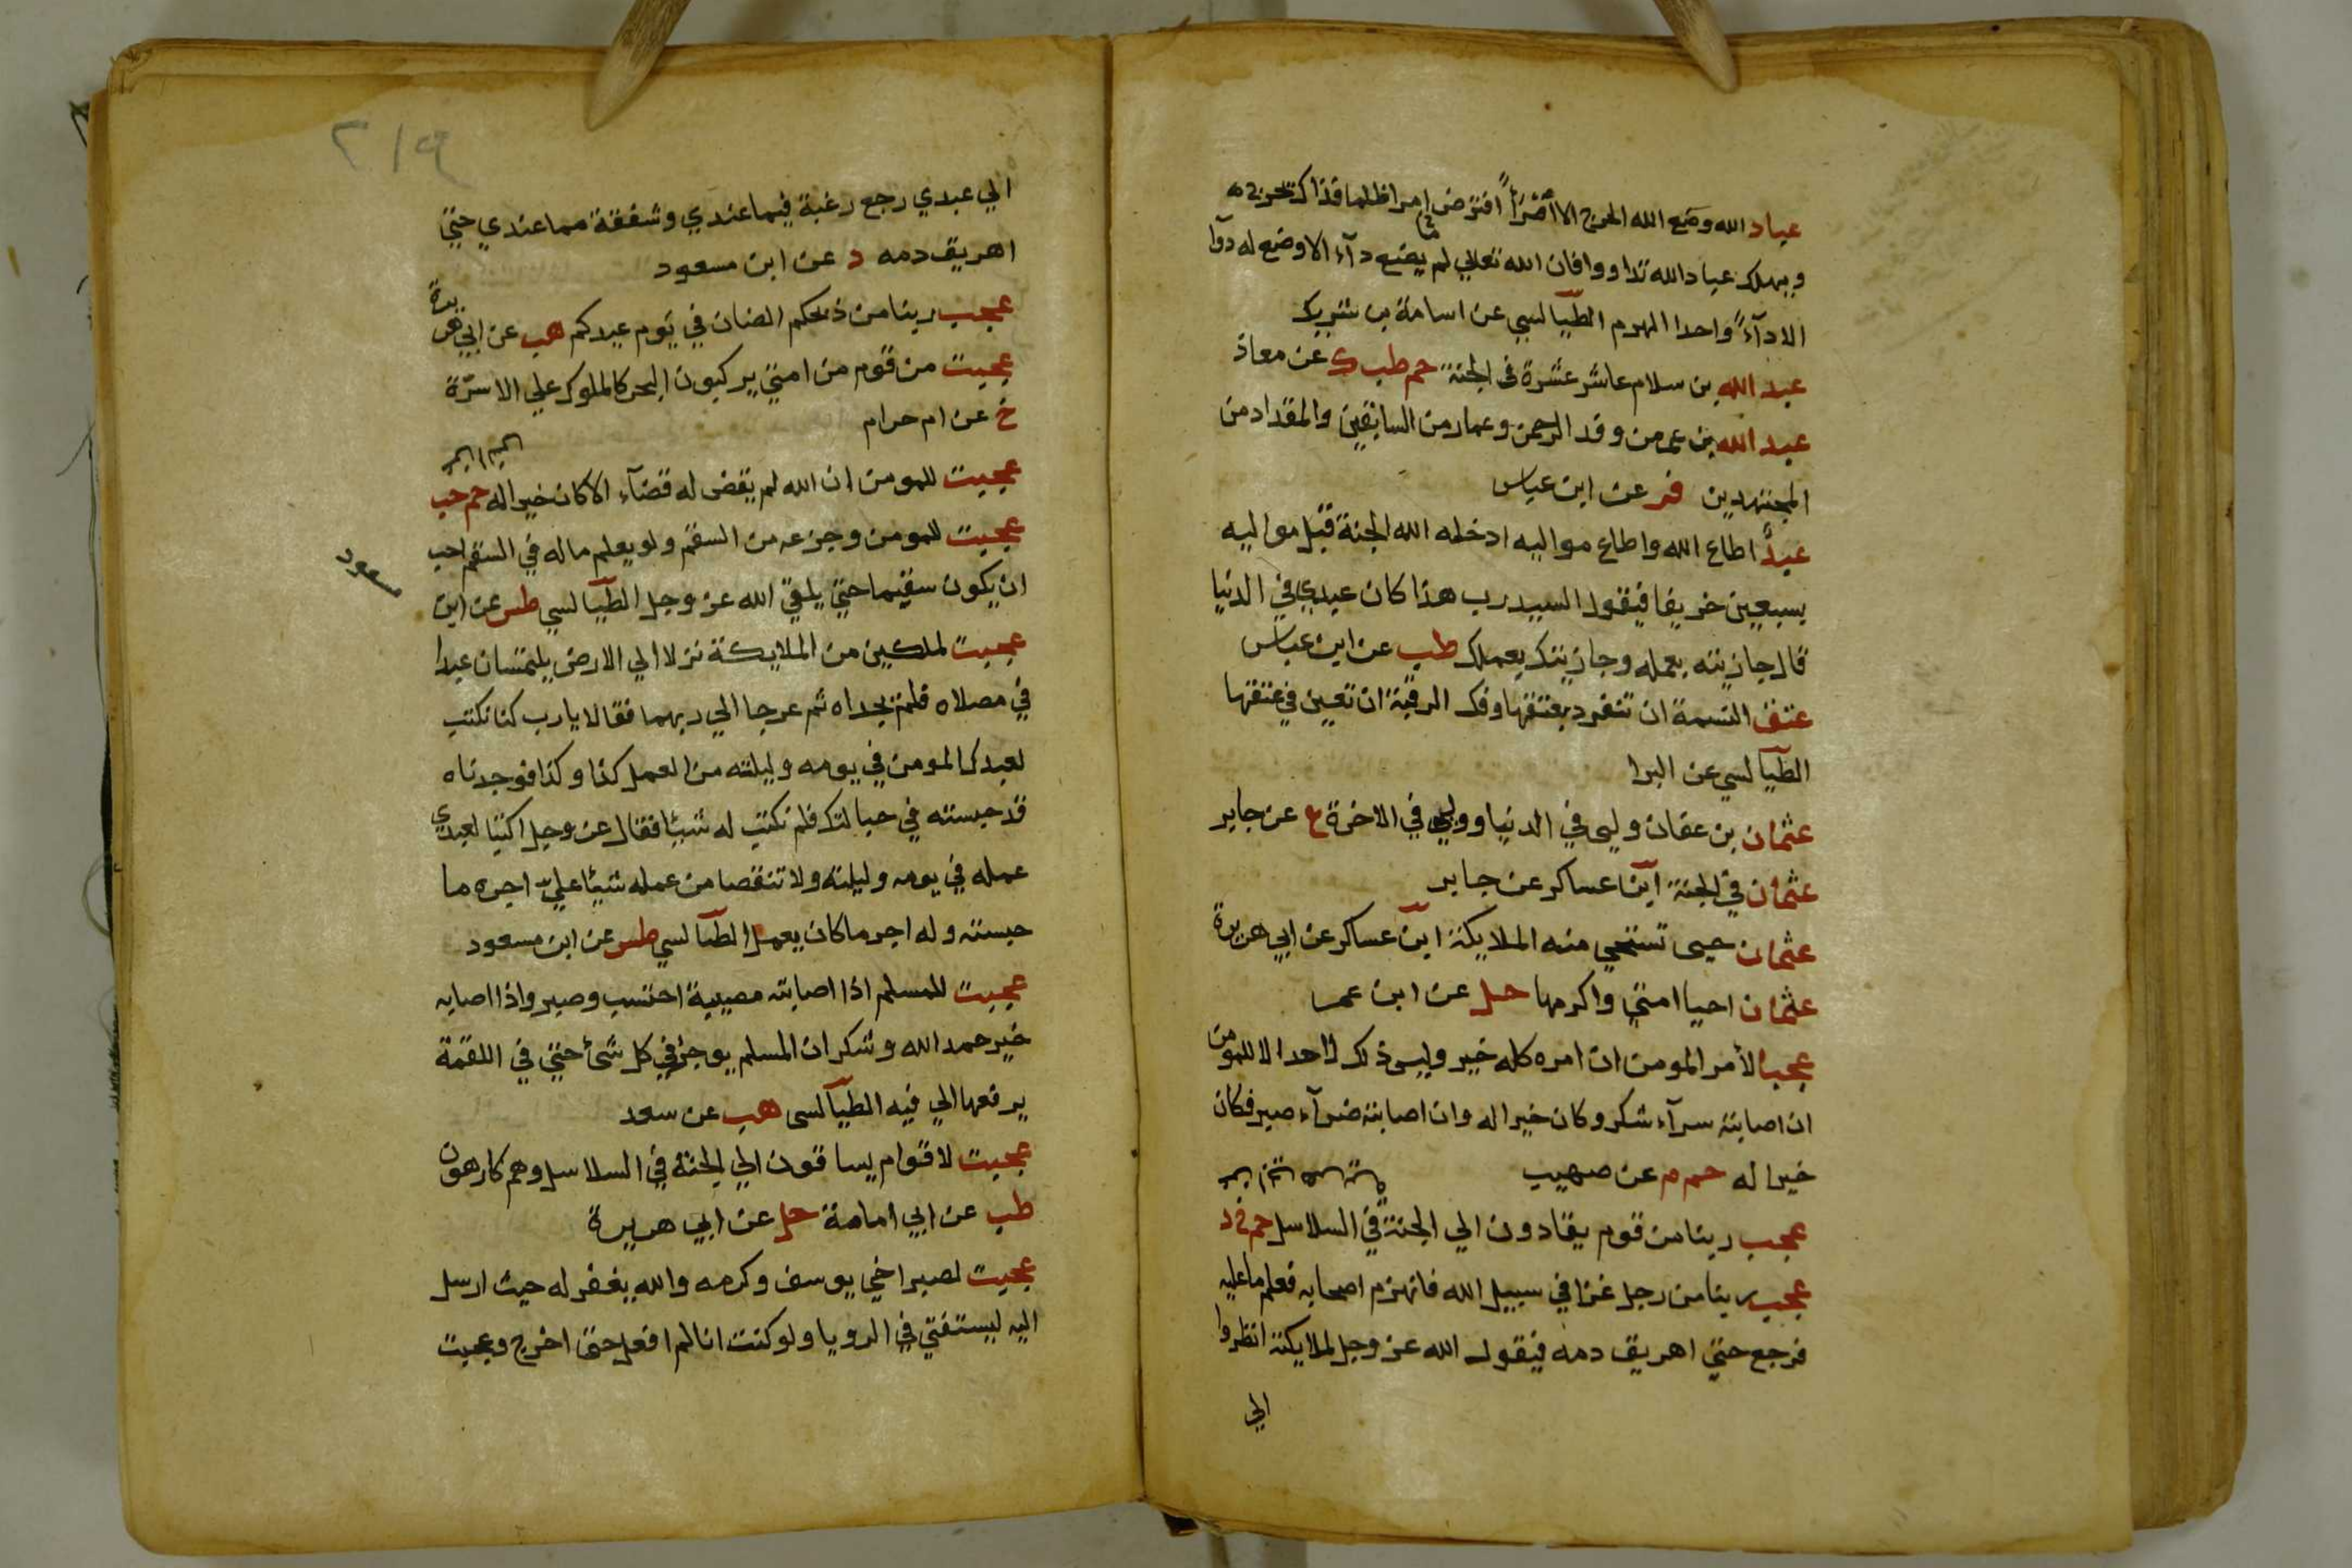 عباد الله وضع الله الحرج الا امرأً افترض امرا ظلما فذاك يحرج
ويهلك عباد الله تداووا فان الله تعالي لم يضع دآء الا وضع له دوآ
الا دآءً واحدا الهرم الطيالسي عن اسامة بن شريك
عبد الله بن سلام عاشر عشرة في الجنة حم طب ك عن معاذ
عبد الله بن عمر من وفد الرحمن وعمار من السابقين والمقداد من
المجتهدين فر عن ابن عباس
عبدٌ اطاع الله واطاع مواليه ادخله الله الجنة قبل مواليه
بسبعين خريفا فيقول السيد رب هذا كان عبدي في الدنيا
قال جازيته بعمله وجازيتك بعملك طب عن ابن عباس
عتق النسمة ان تنفرد بعتقها وفك الرقبة ان تعين في عتقها
الطيالسي عن البرا
عثمان بن عفان وليي في الدنيا ووليي في الاخرة ع عن جابر
عثمان في الجنة ابن عساكر عن جابر
عثمان حيى تستحي منه الملايكة ابن عساكر عن ابي هريرة
عثمان احيا امتي واكرمها حل عن ابن عمر
عجبا لأمر المومن ان امره كله خير وليس ذلك لاحد الا للمومن
ان اصابته سرآء شكر وكان خيرا له وان اصابته ضرآء صبر فكان
خيرا له حم م عن صهيب
عجب ربنا من قوم يقادون الي الجنة في السلاسل حم خ د
عجب ربنا من رجل غزا في سبيل الله فانهزم اصحابه فعلم ما عليه
فرجع حتي اهريق دمه فيقول الله عز وجل لملايكته انظروا
الي
٢١٩
الي عبدي رجع رغبة فيما عندي وشفقة مما عندي حتي
اهريق دمه د عن ابن مسعود
عجب ربنا من ذبحكم الضان في يوم عيدكم هب عن ابي هريرة
عجبت من قوم من امتي يركبون البحر كالملوك علي الاسرّة
خ عن ام حرام
عجبت للمومن ان الله لم يقض له قضآء الا كان خيرا له حم حب
عجبت للمومن وجزعه من السقم ولو يعلم ماله في السقم احب
ان يكون سقيما حتي يلقي الله عز وجل الطيالسي طس عن ابن
مسعود
عجبت لملكين من الملايكة نزلا الي الارض يلتمسان عبدا
في مصلاه فلم يجداه ثم عرجا الي ربهما فقالا يا رب كنا نكتب
لعبدك المومن في يومه وليلته من العمل كذا وكذا فوجدناه
قد حبسته في حبالتك فلم نكتب له شيئا فقال عز وجل اكتبا لعبدي
عمله في يومه وليلته ولا تنقصا من عمله شيئا علي اجره ما
حبسته وله اجر ما كان يعمل الطيالسي طس عن ابن مسعود
عجبت للمسلم اذا اصابته مصيبة احتسب وصبر واذا اصابه
خير حمد الله وشكر ان المسلم يوجر في كل شئ حتي في اللقمة
يرفعها الي فيه الطيالسي هب عن سعد
عجبت لاقوام يساقون الي الجنة في السلاسل وهم كارهون
طب عن ابي امامة حل عن ابي هريرة
عجبت لصبر اخي يوسف وكرمه والله يغفر له حيث ارسل
اليه ليستفتي في الرويا ولو كنت انا لم افعل حتى اخرج وعجبت